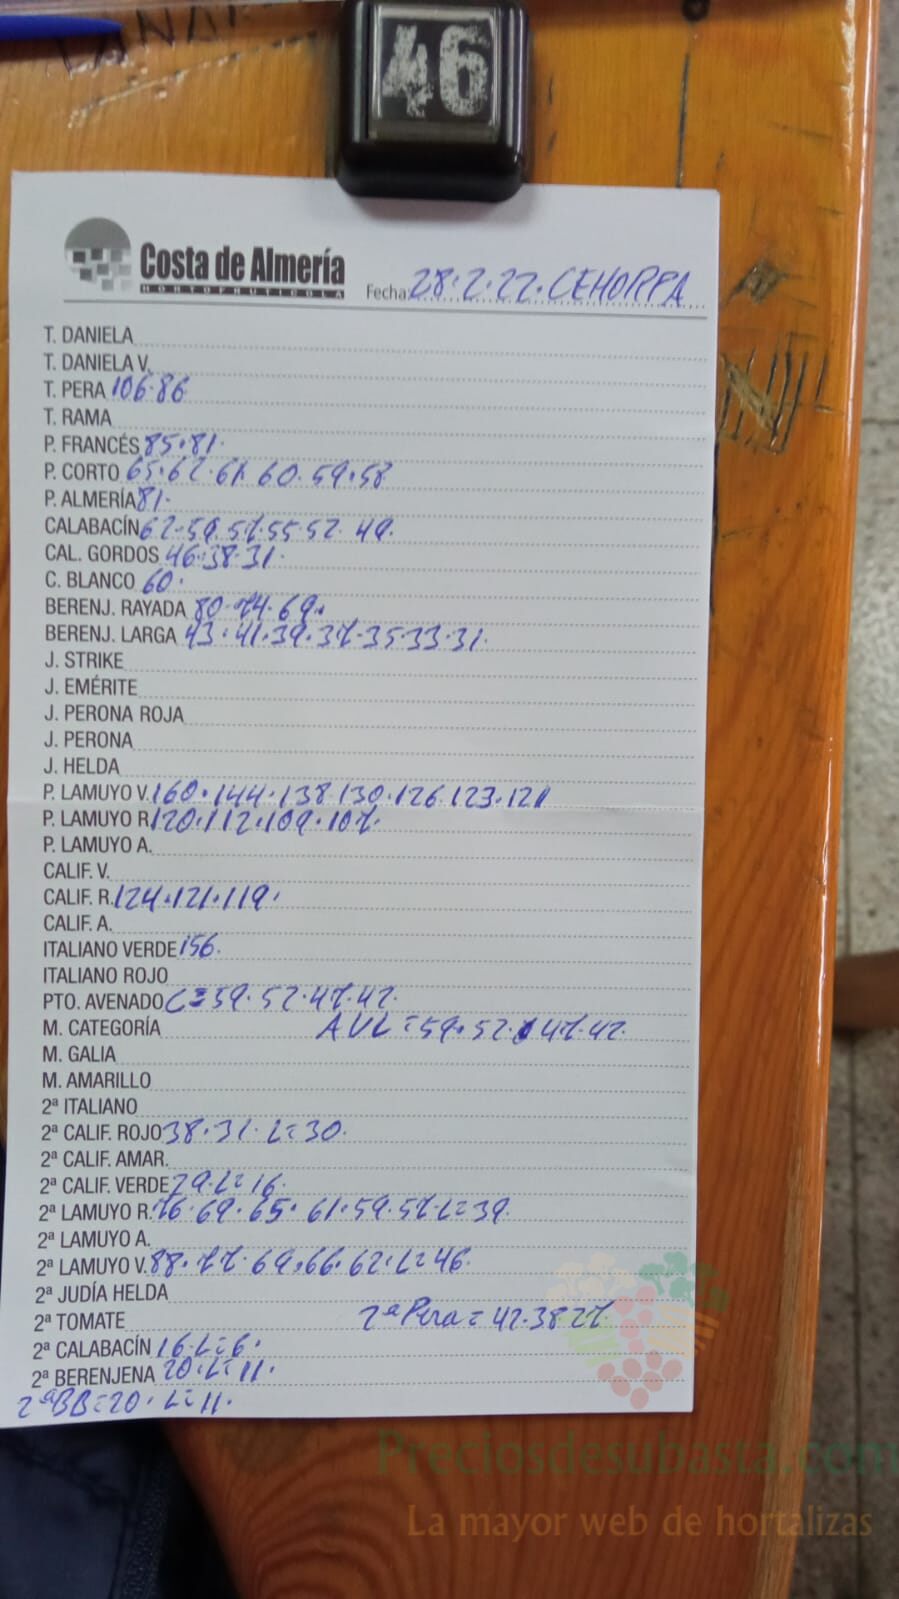 46
Costa de Almería
HORTOFRUTICOLA
Fecha 28.2.22. CEHORPA
T. DANIELA
T. DANIELA V.
T. PERA 106.86
T. RAMA
P. FRANCÉS 85.81.
P. CORTO 65.62.61.60.59.58
P. ALMERÍA 81.
CALABACÍN 62.59.57.55.52.49.
CAL. GORDOS 46.38.31.
C. BLANCO 60.
BERENJ. RAYADA 80.74.69.
BERENJ. LARGA 43.41.39.37.35.33.31.
J. STRIKE
J. EMÉRITE
J. PERONA ROJA
J. PERONA
J. HELDA
P. LAMUYO V. 160.144.138.130.126.123.121
P. LAMUYO R. 120.112.109.107.
P. LAMUYO A.
CALIF. V.
CALIF. R. 124.121.119.
CALIF. A.
ITALIANO VERDE 156.
ITALIANO ROJO
PTO. AVENADO C=59.52.47.42.
M. CATEGORÍA AVL=59.52.47.42.
M. GALIA
M. AMARILLO
2ª ITALIANO
2ª CALIF. ROJO 38.31.L=30.
2ª CALIF. AMAR.
2ª CALIF. VERDE 29.L=16.
2ª LAMUYO R. 76.69.65.61.59.57.L=39.
2ª LAMUYO A.
2ª LAMUYO V. 88.77.69.66.62.L=46.
2ª JUDÍA HELDA
2ª TOMATE 2ª Pera=42.38.27.
2ª CALABACÍN 16.L=6.
2ª BERENJENA 20.L=11.
2ªBB=20.L=11.
Preciosdesubasta.com
La mayor web de hortalizas